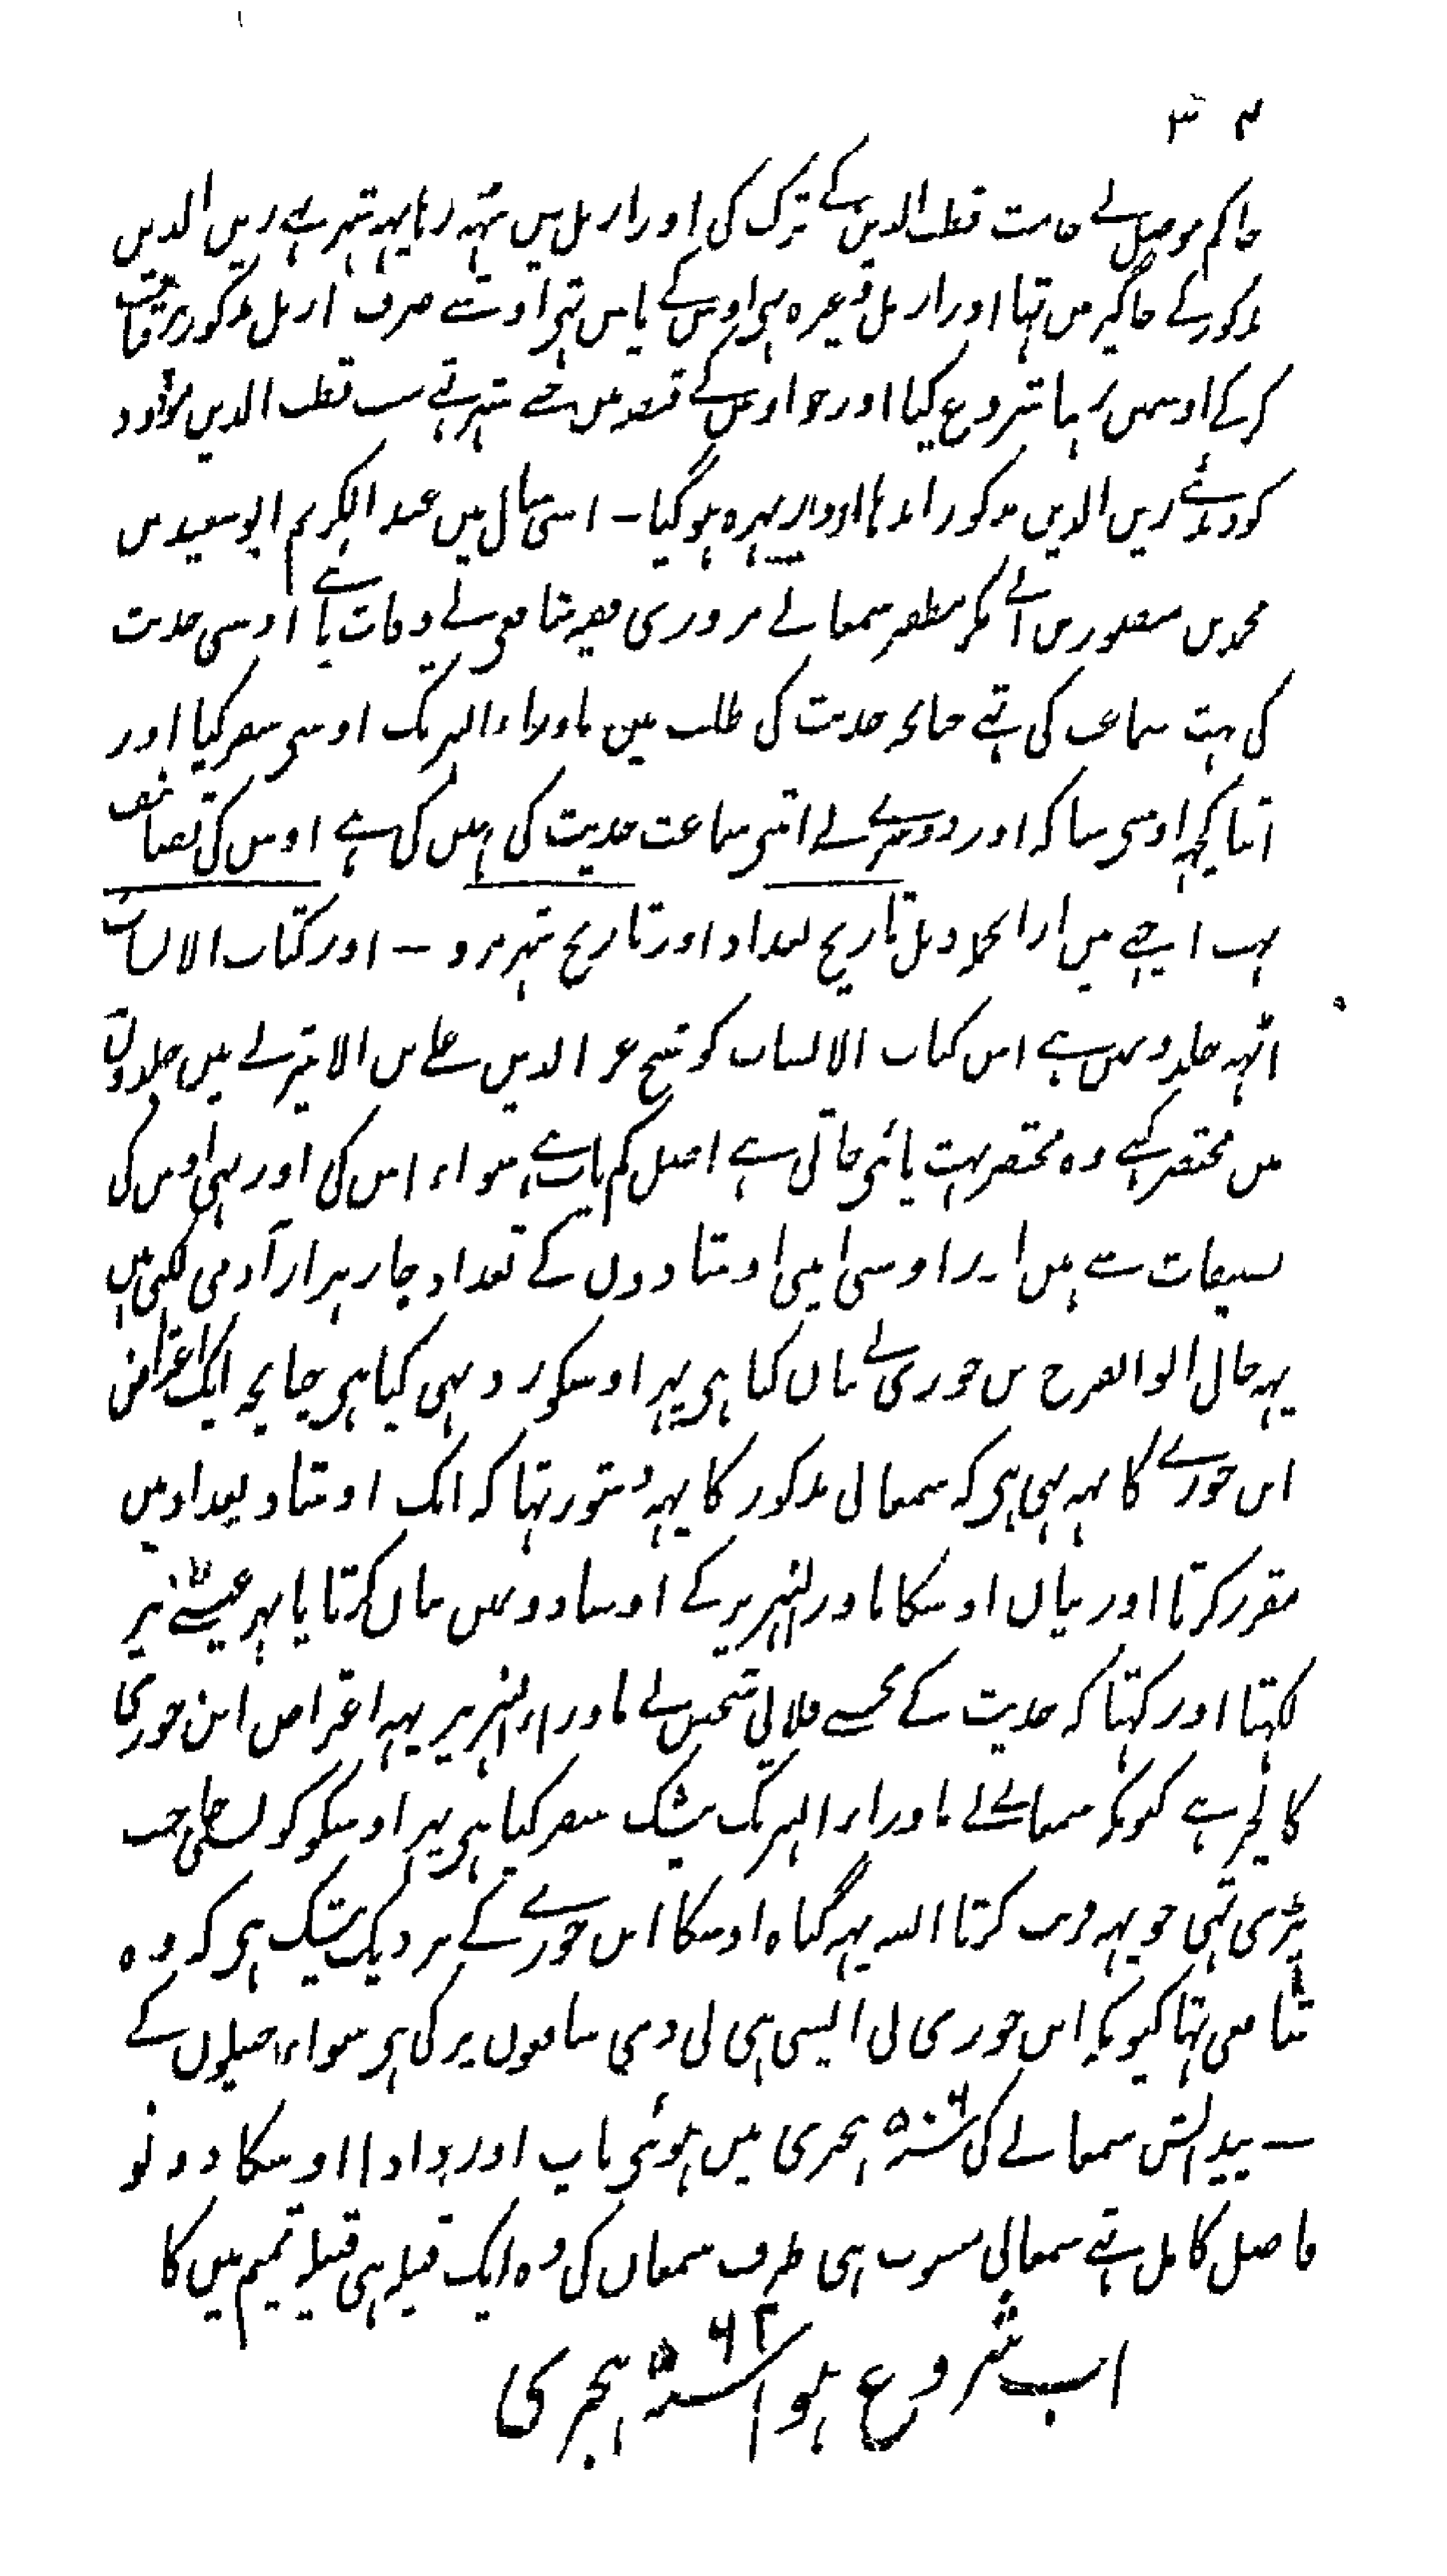 ۳۴
حاکم موصل نے خدمت قطب الدین کے ترک کی اور اربل میں ٹہر رہا یہہ شہر ہے زین الدین
مذکور کے جاگیر میں تہا اور اربل وغیرہ ہی اوس کے پاس تہی اوسنے صرف اربل مذکور پر قناعت
کر کے اوسمیں رہنا شروع کیا اور جو اوس کے قبضہ میں تہے شہر تہے سب قطب الدین مودود
کو دیدئے زین الدین مذکور اندہا اور بہرہ ہو گیا ۔ اسی سال میں عبد الکریم ابو سعید بن
محمد بن منصور بن ابے بکر مظفر سمعانے مروزی فقیہ شافعی نے وفات پائے اوسی حدیث
کی بہت سماعت کی تہے چنانچہ حدیث کی طلب میں ماوراء النہر تک اوسی سفر کیا اور
اتنا کچہہ اوسی سنا کہ اور دوسرے نے اتنی سماعت حدیث کی نہیں کی ہے اوس کی تصانیف
بہت اچہے ہیں ازانجملہ ذیل تاریخ بغداد اور تاریخ شہر مرو ۔ اور کتاب الانساب
آٹہہ جلدونمیں ہے اس کتاب الانساب کو شیخ عز الدین علے بن الاثیر نے تین جلدوں
میں مختصر کیے وہ مختصر بہت پائی جاتی ہے اصل کم یاب ہے سواء اس کی اور بہی اوس کی
تصنیفات سے ہیں اور اوسی اپنی اوستادوں کے تعداد چار ہزار آدمی لکہی ہیں
یہہ حال ابو الفرح بن جوزی نے بیان کیا ہی پہر اوسکو رد بہی کیا ہی چنانچہ ایک اعتراض
ابن جوزے کا یہہ بہی ہی کہ سمعانی مذکور کا یہہ دستور تہا کہ ایک اوستاد بغداد میں
مقرر کرتا اور بیان اوسکا ماورالنہر پر کے اوستادونمیں بیان کرتا یا نہر عیسے پر
کہتا اور کہتا کہ حدیث کے مجہسے فلانی شخص نے ماوراء النہر پر یہہ اعتراض ابن جوزی
کا لچر ہے کیونکہ سمعانے نے ماوراء النہر تک بیشک سفر کیا ہی پہر اوسکو کونسی حاجت
پڑی تہی جو یہہ فریب کرتا البتہ یہہ گناہ اوسکا ابن جوزے کے نزدیک بیشک ہی کہ وہ
شافعی تہا کیونکہ ابن جوزی نی ایسی ہی بی ادبی شافعیوں پر کی ہی سواء حنبلیوں کے
۔ پیدایش سمعانے کی سنہ ۵۰۶ ہجری میں ہوئی باپ اور دادا اوسکا دونو
فاضل کامل تہے سمعانی منسوب ہی طرف سمعان کی وہ ایک قبیلہ ہی قبیلہ تمیم میں کا
اب شروع ہوا سنہ ۵۶۲ ہجری